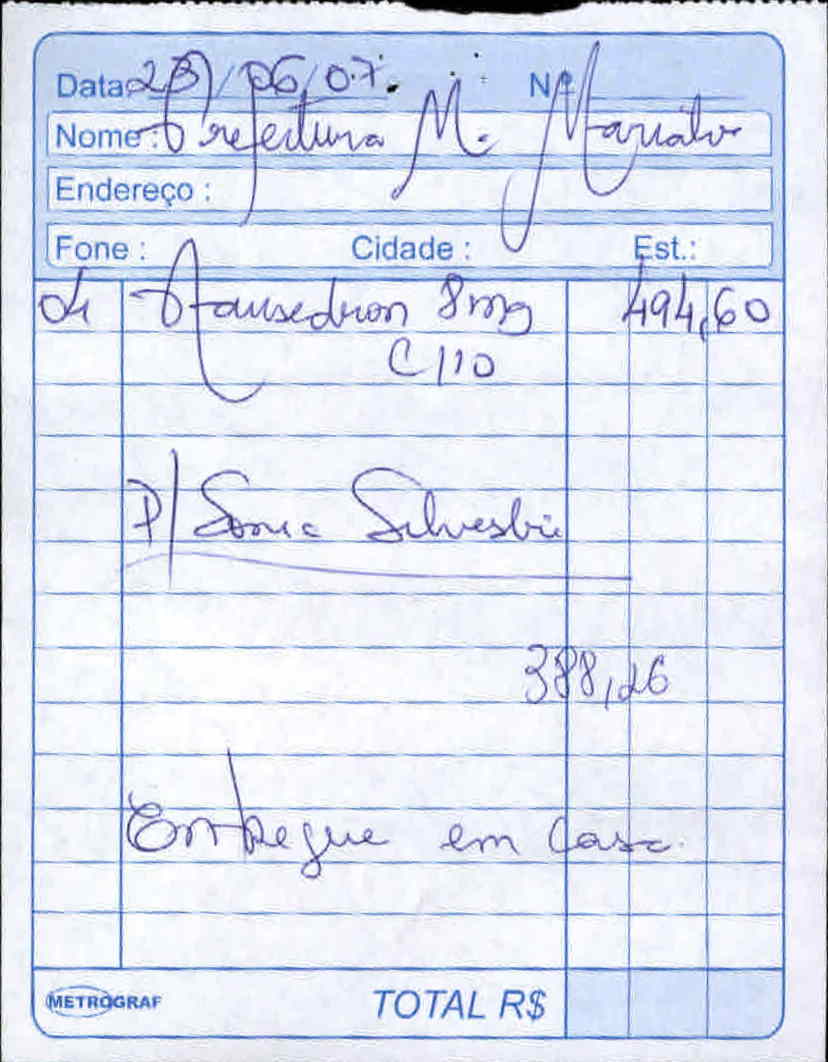 Data 28/06/07. Nº
Nome: Prefeitura M. Marialva
Endereço :
Fone : Cidade : Est.:
01 Nausedron 8mg 494,60
C/10
P/ Sonia Silvestrie
388,26
Entregue em casa.
METROGRAF TOTAL R$